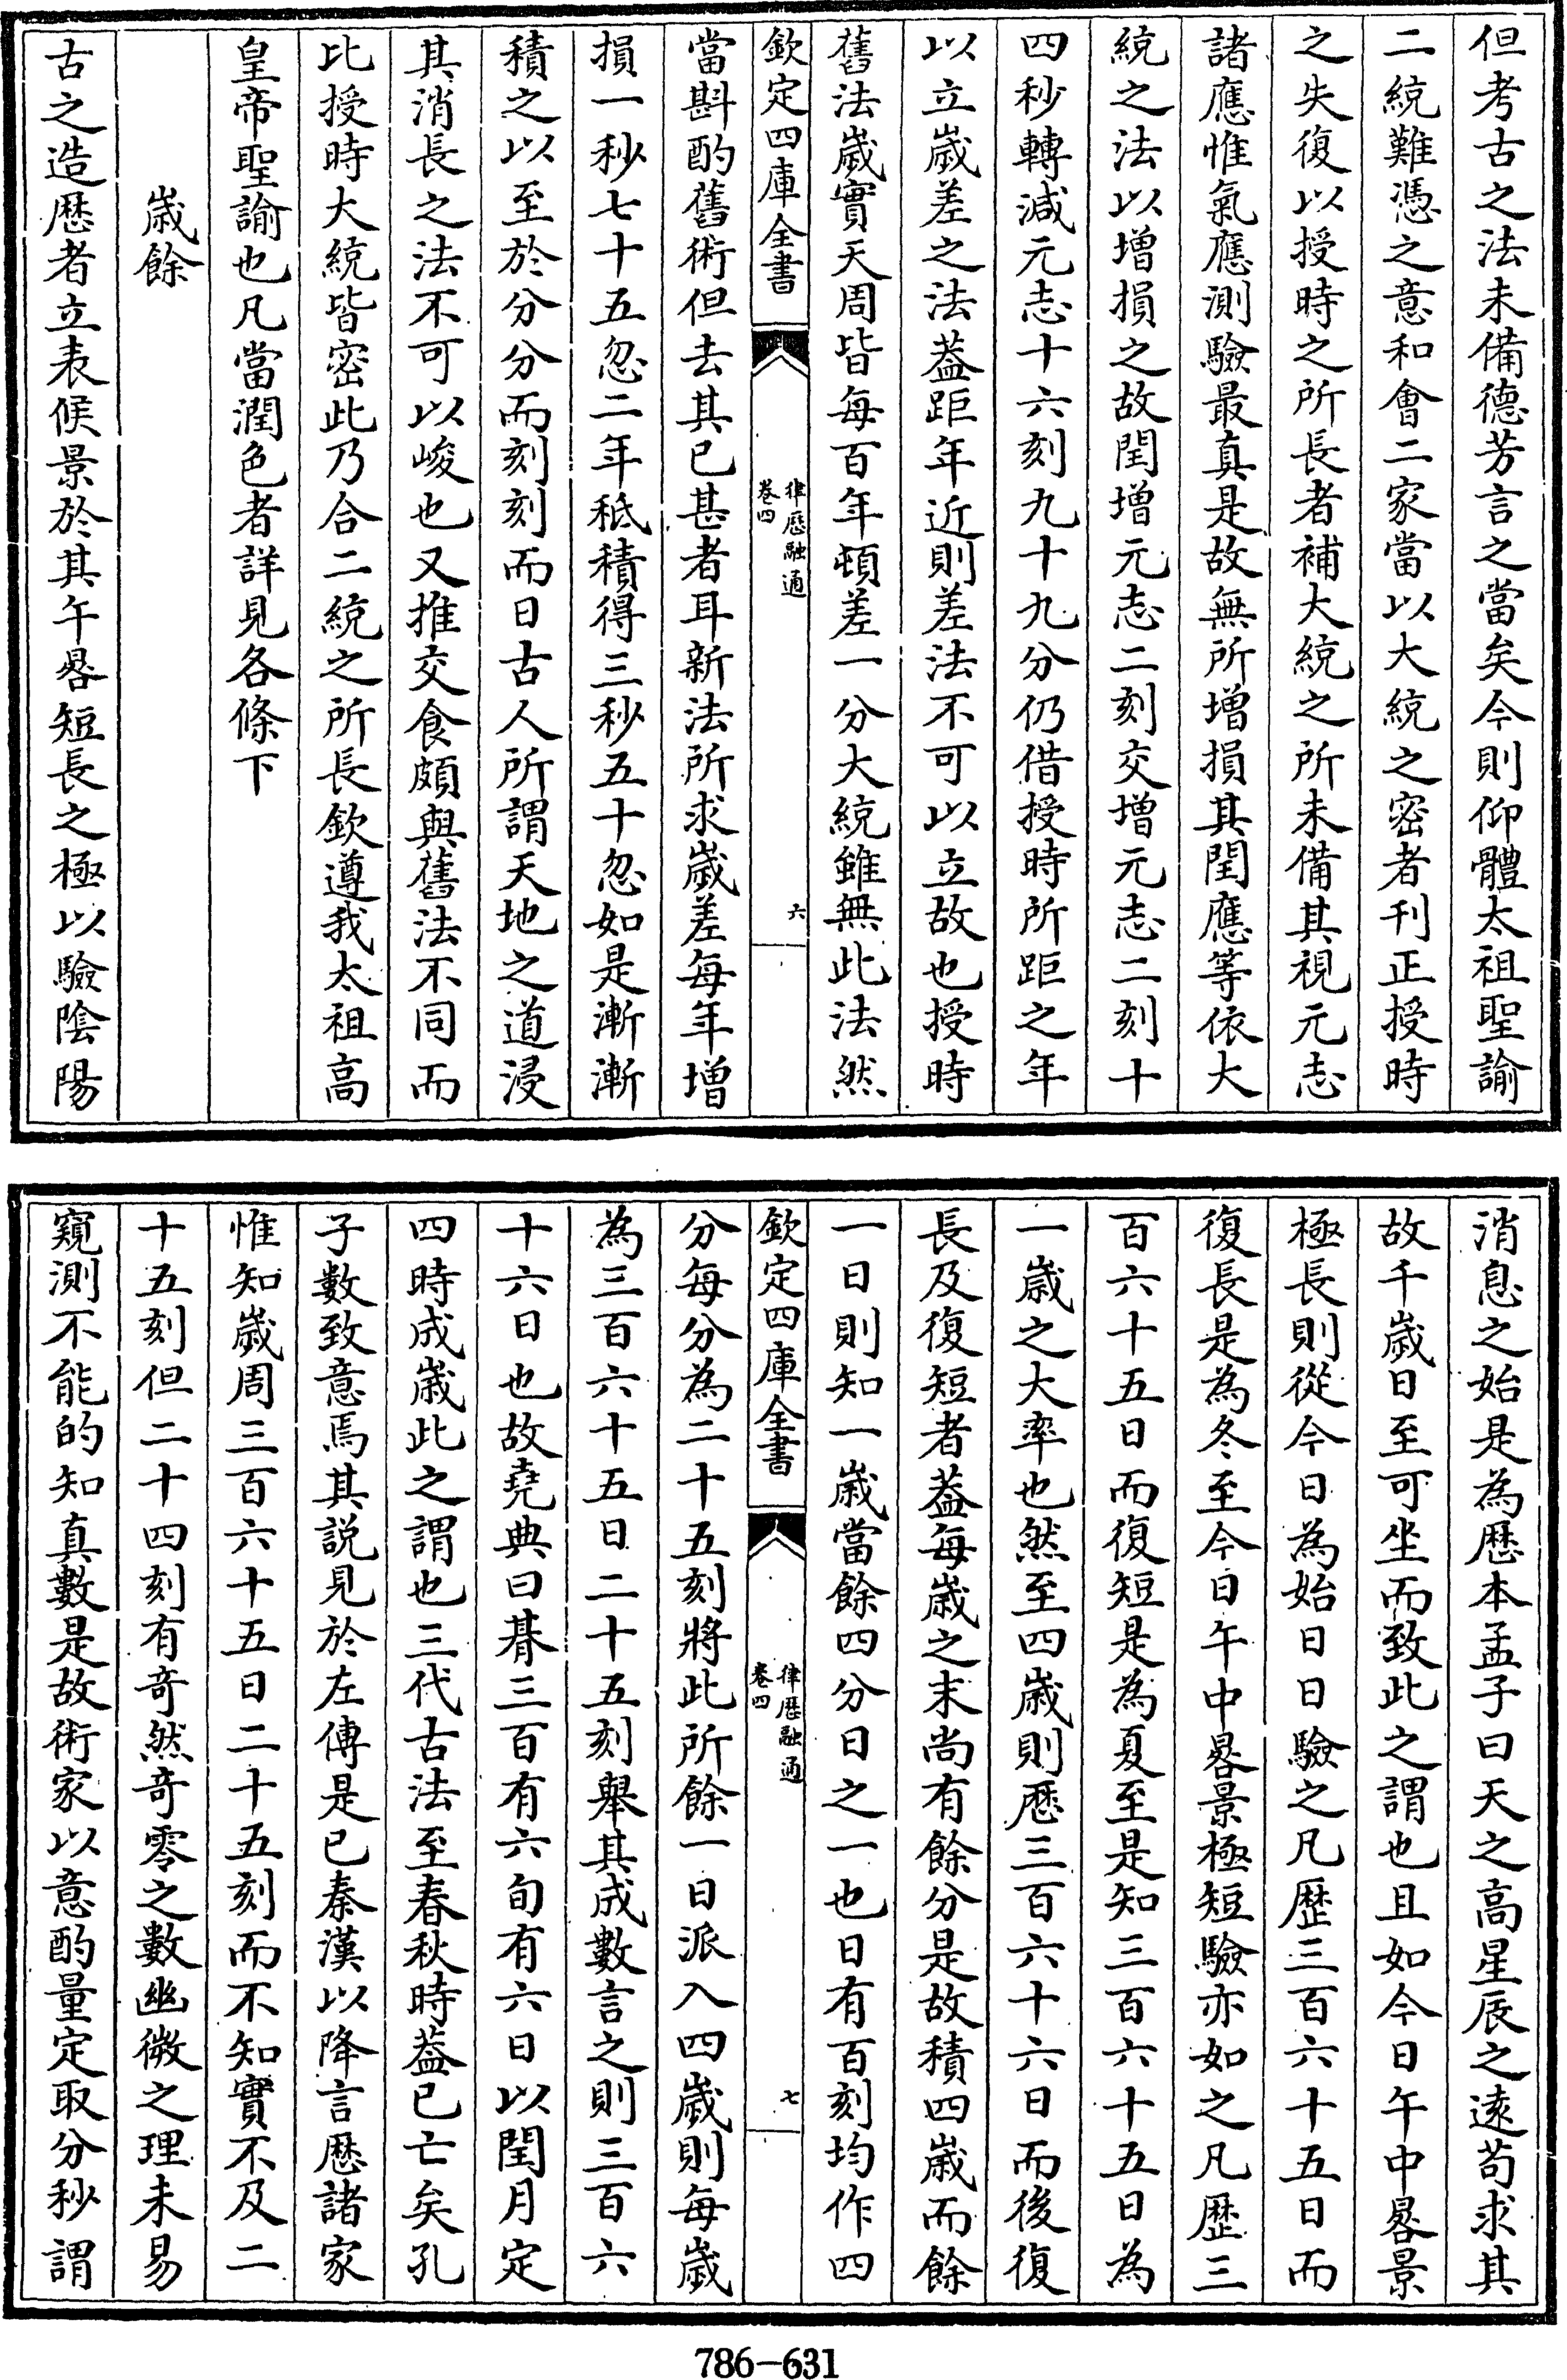 但考古之法未備德芳言之當矣今則仰體太祖聖諭
二統難憑之意和會二家當以大統之密者刋正授時
之失復以授時之所長者補大統之所未備其視元志
諸應惟氣應測驗最真是故無所增損其閏應等依大
統之法以增損之故閏增元志二刻交增元志二刻十
四秒轉減元志十六刻九十九分仍借授時所距之年
以立歲差之法葢距年近則差法不可以立故也授時
舊法歲實天周皆每百年頓差一分大統雖無此法然
欽定四庫全書
律厯融通
卷四
六
當斟酌舊術但去其已甚者耳新法所求歲差每年增
損一秒七十五忽二年秪積得三秒五十忽如是漸漸
積之以至於分分而刻刻而日古人所謂天地之道浸
其消長之法不可以峻也又推交食頗與舊法不同而
比授時大統皆密此乃合二統之所長欽遵我太祖高
皇帝聖諭也凡當潤色者詳見各條下
歲餘
古之造厯者立表候景於其午晷短長之極以驗陰陽
消息之始是為厯本孟子曰天之高星辰之遠苟求其
故千歲日至可坐而致此之謂也且如今日午中晷景
極長則從今日為始日日驗之凡歷三百六十五日而
復長是為冬至今日午中晷景極短驗亦如之凡歷三
百六十五日而復短是為夏至是知三百六十五日為
一歲之大率也然至四歲則厯三百六十六日而後復
長及復短者葢每歲之末尚有餘分是故積四歲而餘
一日則知一歲當餘四分日之一也日有百刻均作四
欽定四庫全書
律厯融通
卷四
七
分每分為二十五刻將此所餘一日派入四歲則每歲
為三百六十五日二十五刻舉其成數言之則三百六
十六日也故堯典曰朞三百有六旬有六日以閏月定
四時成歲此之謂也三代古法至春秋時葢已亡矣孔
子數致意焉其說見於左傳是已秦漢以降言厯諸家
惟知歲周三百六十五日二十五刻而不知實不及二
十五刻但二十四刻有竒然竒零之數幽微之理未易
窺測不能的知真數是故術家以意酌量定取分秒謂
786-631